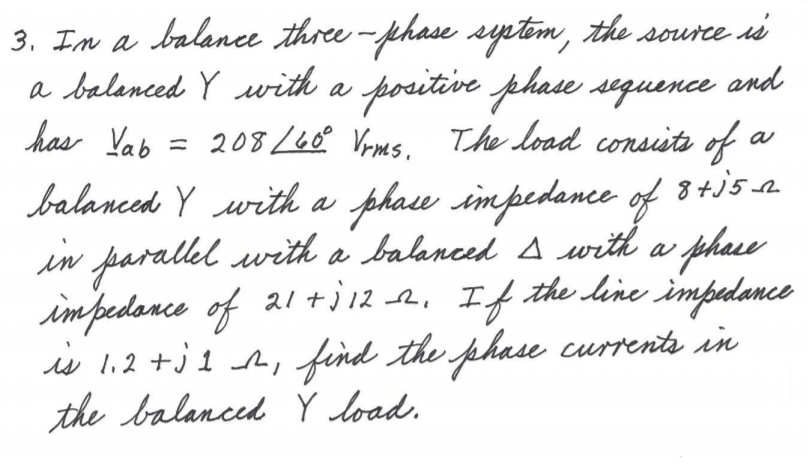 3. In a balance three-phase system, the source is
a balanced Y with a positive phase sequence and
has Vab = 208∠60° Vrms. The load consists of a
balanced Y with a phase impedance of 8+j5 Ω
in parallel with a balanced Δ with a phase
impedance of 21+j12 Ω. If the line impedance
is 1.2+j1 Ω, find the phase currents in
the balanced Y load.